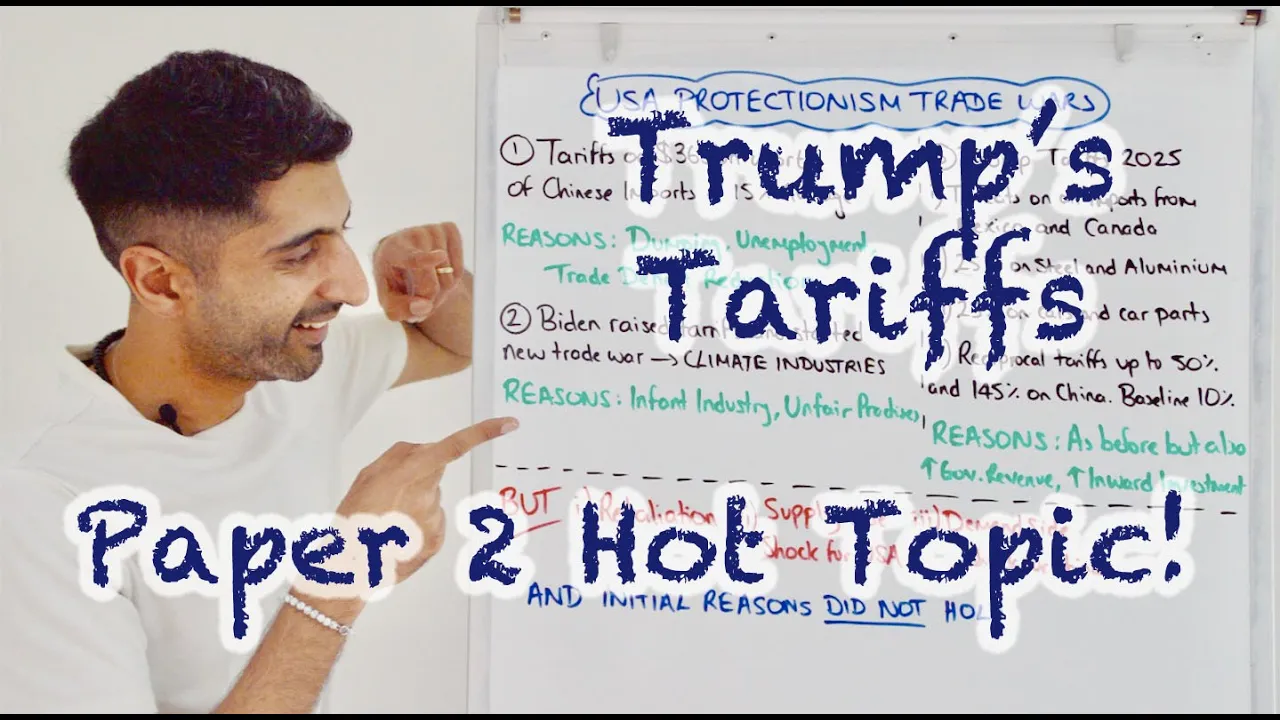 USA PROTECTIONISM TRADE WARS
Trump's
Tariffs
① Tariffs
of Chinese Imports 15%
REASONS: Dumping, Unemployment,
Trade Reduction
② Biden raised
new trade war → CLIMATE INDUSTRIES
REASONS: Infant Industry, Unfair Practises
2025
on imports from
Mexico and Canada
on Steel and Aluminium
and car parts
Reciprocal tariffs up to 50%
and 145% on China. Baseline 10%
REASONS: As before but also
↑ Gov. Revenue, ↑ Inward Investment
BUT i) Retaliation
Supply iii) Demand side
Shock for USA
Paper 2 Hot Topic!
AND INITIAL REASONS DID NOT